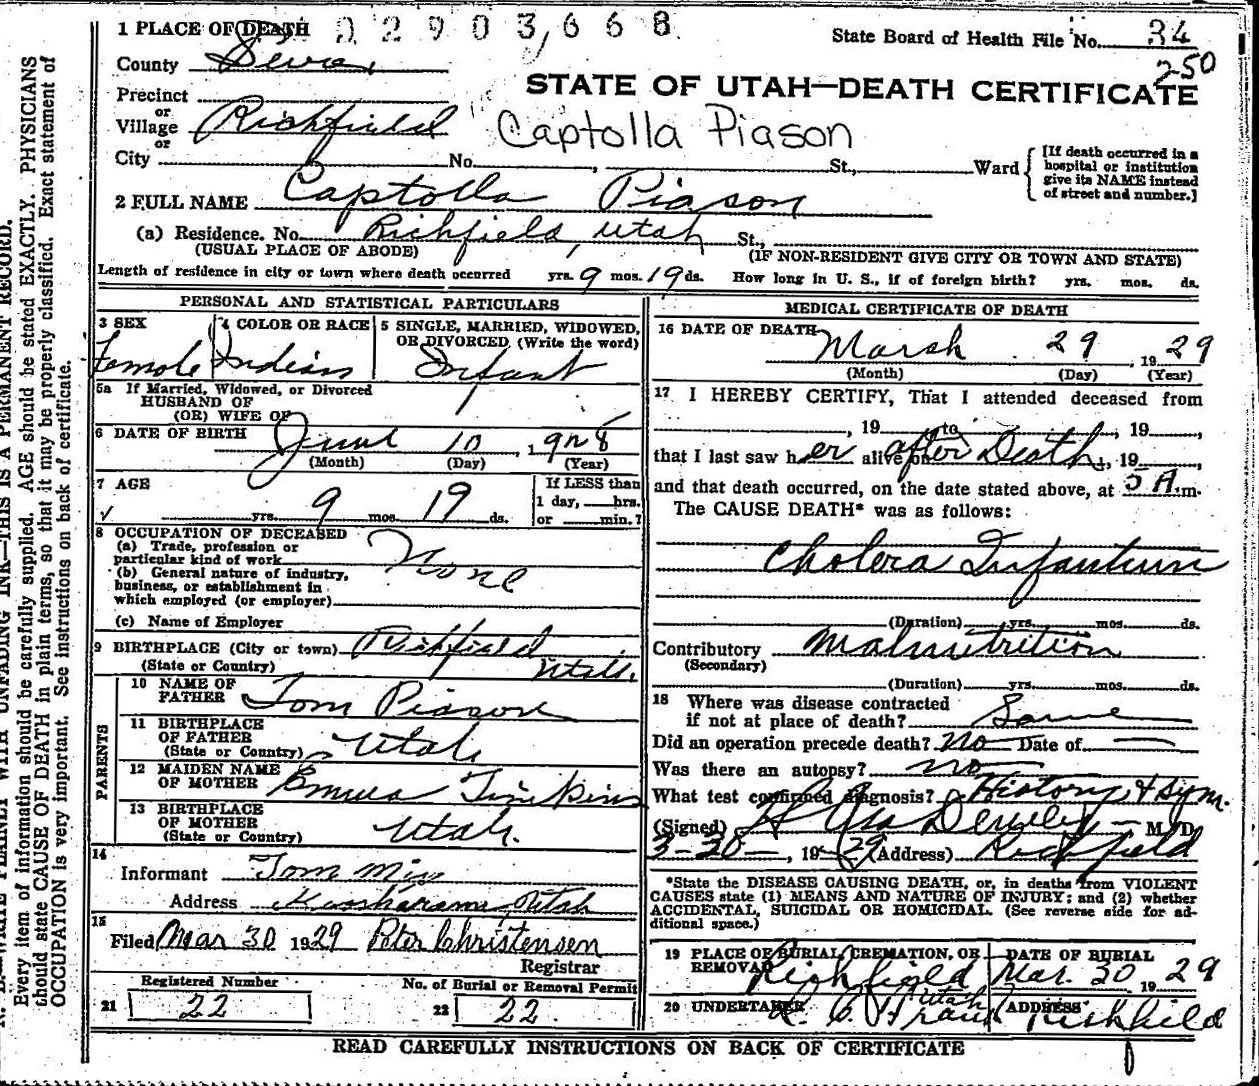 1 PLACE OF DEATH 02903668
State Board of Health File No. 34
County Sevier
250
STATE OF UTAH—DEATH CERTIFICATE
Precinct
or
Village Richfield
Captolla Piason
or
City No. , St., Ward
[If death occurred in a hospital or institution give its NAME instead of street and number.]
2 FULL NAME Captolla Piason
(a) Residence. No. Richfield, Utah St.,
(USUAL PLACE OF ABODE) (IF NON-RESIDENT GIVE CITY OR TOWN AND STATE)
Length of residence in city or town where death occurred yrs. 9 mos. 19 ds. How long in U. S., if of foreign birth? yrs. mos. ds.
PERSONAL AND STATISTICAL PARTICULARS
3 SEX 4 COLOR OR RACE 5 SINGLE, MARRIED, WIDOWED,
OR DIVORCED (Write the word)
Female Indian Infant
5a If Married, Widowed, or Divorced
HUSBAND OF
(OR) WIFE OF
6 DATE OF BIRTH June 10, 1928
(Month) (Day) (Year)
7 AGE If LESS than
1 day, hrs.
yrs. 9 mos. 19 ds. or min.?
8 OCCUPATION OF DECEASED
(a) Trade, profession or
particular kind of work None
(b) General nature of industry,
business, or establishment in
which employed (or employer)
(c) Name of Employer
9 BIRTHPLACE (City or town) Richfield
(State or Country) Utah.
PARENTS
10 NAME OF
FATHER Tom Piason
11 BIRTHPLACE
OF FATHER
(State or Country) Utah
12 MAIDEN NAME
OF MOTHER Emma Timpkins
13 BIRTHPLACE
OF MOTHER
(State or Country) Utah.
14
Informant Tom Mix
Address Koosharem, Utah
15
Filed Mar 30 1929 Peter Christensen
Registrar
Registered Number No. of Burial or Removal Permit
21 22 22 22
MEDICAL CERTIFICATE OF DEATH
16 DATE OF DEATH March 29, 1929
(Month) (Day) (Year)
17 I HEREBY CERTIFY, That I attended deceased from
, 19 to , 19 ,
that I last saw her alive on after Death, 19 ,
and that death occurred, on the date stated above, at 5 A.m.
The CAUSE DEATH* was as follows:
Cholera Infantum
(Duration) yrs. mos. ds.
Contributory Malnutrition
(Secondary)
(Duration) yrs. mos. ds.
18 Where was disease contracted
if not at place of death? Same
Did an operation precede death? No Date of —
Was there an autopsy? no
What test confirmed diagnosis? History & Sym.
(Signed) M. D.
3-30-, 1929 (Address) Richfield
*State the DISEASE CAUSING DEATH, or, in deaths from VIOLENT
CAUSES state (1) MEANS AND NATURE OF INJURY; and (2) whether
ACCIDENTAL, SUICIDAL OR HOMICIDAL. (See reverse side for ad-
ditional space.)
19 PLACE OF BURIAL, CREMATION, OR
REMOVAL Richfield Utah
DATE OF BURIAL
Mar. 30 1929
20 UNDERTAKER
ADDRESS Richfield
READ CAREFULLY INSTRUCTIONS ON BACK OF CERTIFICATE
WRITE PLAINLY WITH UNFADING INK—THIS IS A PERMANENT RECORD.
Every item of information should be carefully supplied. AGE should be stated EXACTLY. PHYSICIANS
should state CAUSE OF DEATH in plain terms, so that it may be properly classified. Exact statement of
OCCUPATION is very important. See instructions on back of certificate.